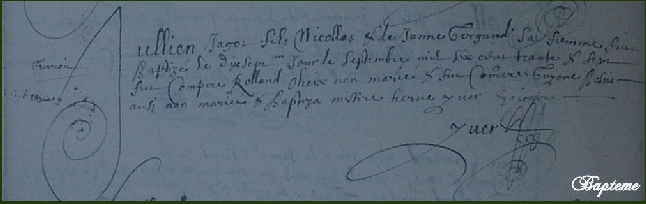 Jullien Jagor fils Nicollas & de Janne Gorgand sa femme fut
Baptizé le dixsept me Jour de Septembre mil six cent trante & sept
fut Compere Rolland Choix non marié & fut Comere Guyone
ausi non mariée & Baptiza misire herve yuer
yuer
Bapteme